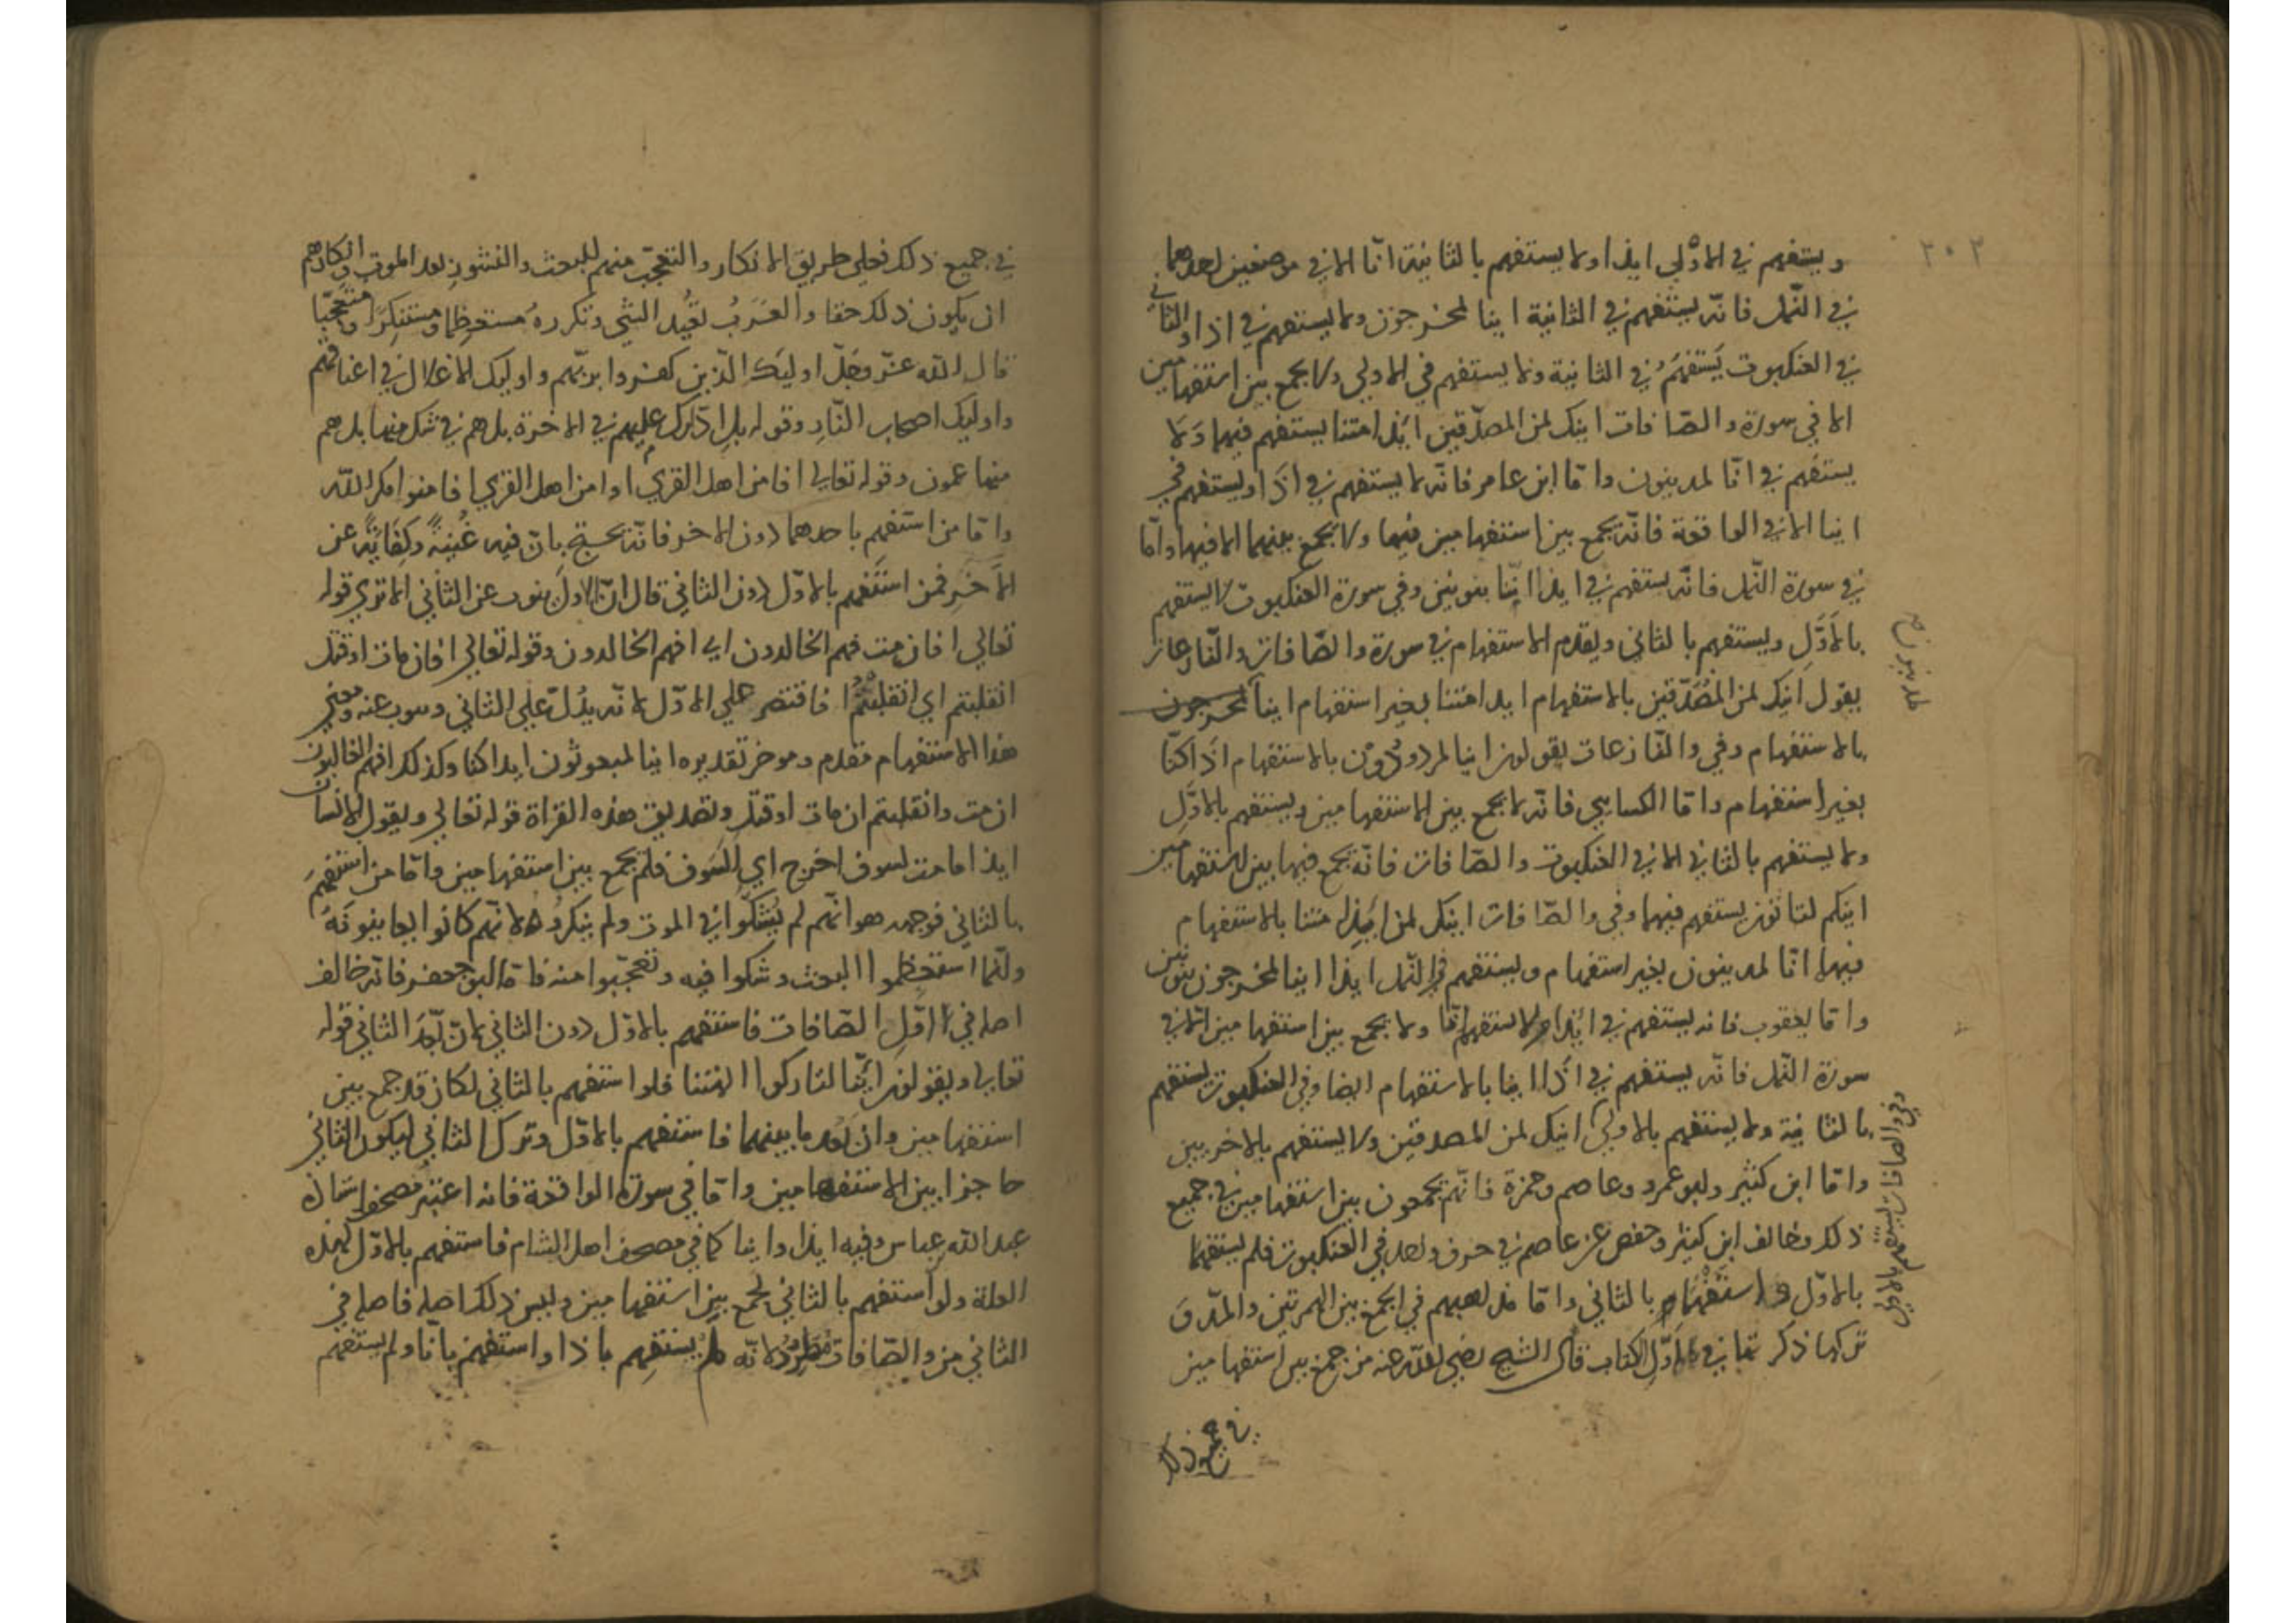 ٢٠٢
ويستفهم في الاولى ايذا ولا يستفهم بالثانية انا الا في موضعين احدهما
في النمل فانه يستفهم في الثانية اينا لمخرجون ولا يستفهم في اذا والثاني
في العنكبوت يستفهم في الثانية ولا يستفهم في الاولى ولا يجمع بين استفهامين
الا في سورة والصافات اينك لمن المصدقين ايذا متنا يستفهم فيهما ولا
يستفهم في انا لمدينون واما ابن عامر فانه لا يستفهم في اذا ويستفهم في
اينا الا في الواقعة فانه يجمع بين استفهامين فيها ولا يجمع بينهما الا فيها واما
في سورة النمل فانه يستفهم في ايذا اننا بنونين وفي سورة العنكبوت لا يستفهم
بالاول ويستفهم بالثاني ويقدم الاستفهام في سورة والصافات والنازعات
يقول اينك لمن المصدقين بالاستفهام ايذا متنا بغير استفهام اينا لمخرجون
لمدينون صح
بالاستفهام وفي والنازعات يقولون اينا لمردودون بالاستفهام اذا كنا
بغير استفهام واما الكسايي فانه لا يجمع بين الاستفهامين ويستفهم بالاول
ولا يستفهم بالثاني الا في العنكبوت والصافات فانه يجمع فيها بين استفهامين
اينكم لتاتون يستفهم فيهما وفي والصافات اينك لمن ايذا متنا بالاستفهام
فيهما انا لمدينون بغير استفهام ويستفهم في النمل ايذا اينا لمخرجون بنونين
واما يعقوب فانه يستفهم في ايذا ولا يستفهم انا ولا يجمع بين استفهامين الا في
سورة النمل فانه يستفهم في اذا اينا بالاستفهام ايضا وفي العنكبوت يستفهم
بالثانية ولا يستفهم بالاولى اينك لمن المصدقين ولا يستفهم بالاخريين
وفي والصافات يستفهم بالاولى
واما ابن كثير وابو عمرو وعاصم وحمزة فانهم يجمعون بين استفهامين في جميع
ذلك وخالف ابن كثير وحفص عن عاصم في حرف واحد في العنكبوت فلم يستفهما
بالاول واستفهما بالثاني واما مذاهبهم في الجمع بين الهمزتين والمد و
تركها ذكر تها في اول الكتاب قال الشيخ رضي الله عنه من جمع بين استفهامين
في جميع ذلك
في جميع ذلك فعلى طريق الانكار والتعجب منهم للبعث والنشور بعد الموت وانكارهم
ان يكون ذلك حقا والعرب تعيد الشي وتكرره مستعظما ومستنكرا ومتعجبا
قال الله عز وجل اوليك الذين كفروا بربهم واوليك الاغلال في اعناقهم
واوليك اصحاب النار وقوله بل ادارك علمهم في الاخرة بل هم في شك منها بل هم
منها عمون وقوله تعالى افامن اهل القرى اوامن اهل القرى افامنوا مكر الله
واما من استفهم باحدهما دون الاخر فانه يحتج بان فيه غنية وكفاية عن
الاخر فمن استفهم بالاول دون الثاني قال ان الاول ينوب عن الثاني الا ترى قوله
تعالى افان مت فهم الخالدون اي افهم الخالدون وقوله تعالى افان مات او قتل
انقلبتم اي انقلبتم افاقتصر على الاول لانه يدل على الثاني وينوب عنه ومعنى
هذا الاستفهام مقدم وموخر تقديره اينا لمبعوثون ايذا كنا وكذلك افهم الخالدون
ان مت وانقلبتم ان مات او قتل وتصديق هذه القراة قوله تعالى ويقول الانسان
ايذا ما مت لسوف اخرج اي السوف فلم يجمع بين استفهامين واما من استفهم
بالثاني فوجهه هو انهم لم يشكوا في الموت ولم ينكروه لانهم كانوا يعاينونه
وانما استعظموا البعث وشكوا فيه وتعجبوا منه فاما ابو جعفر فانه خالف
اصله في اول الصافات فاستفهم بالاول دون الثاني لان بعد الثاني قوله
تعالى ويقولون اينا لتاركوا الهتنا فلو استفهم بالثاني لكان قد جمع بين
استفهامين وان بعد ما بينهما فاستفهم بالاول وترك الثاني ليكون الثاني
حاجزا بين الاستفهامين واما في سورة الواقعة فانه اعتبر مصحف استاذه
عبد الله بن عباس وفيه ايذا واينا كما في مصحف اهل الشام فاستفهم بالاول لهذه
العلة ولو استفهم بالثاني لجمع بين استفهامين وليس ذلك اصله فاصله في
الثاني من والصافات مطرد لانه لم يستفهم باذا واستفهم بانا ولم يستفهم